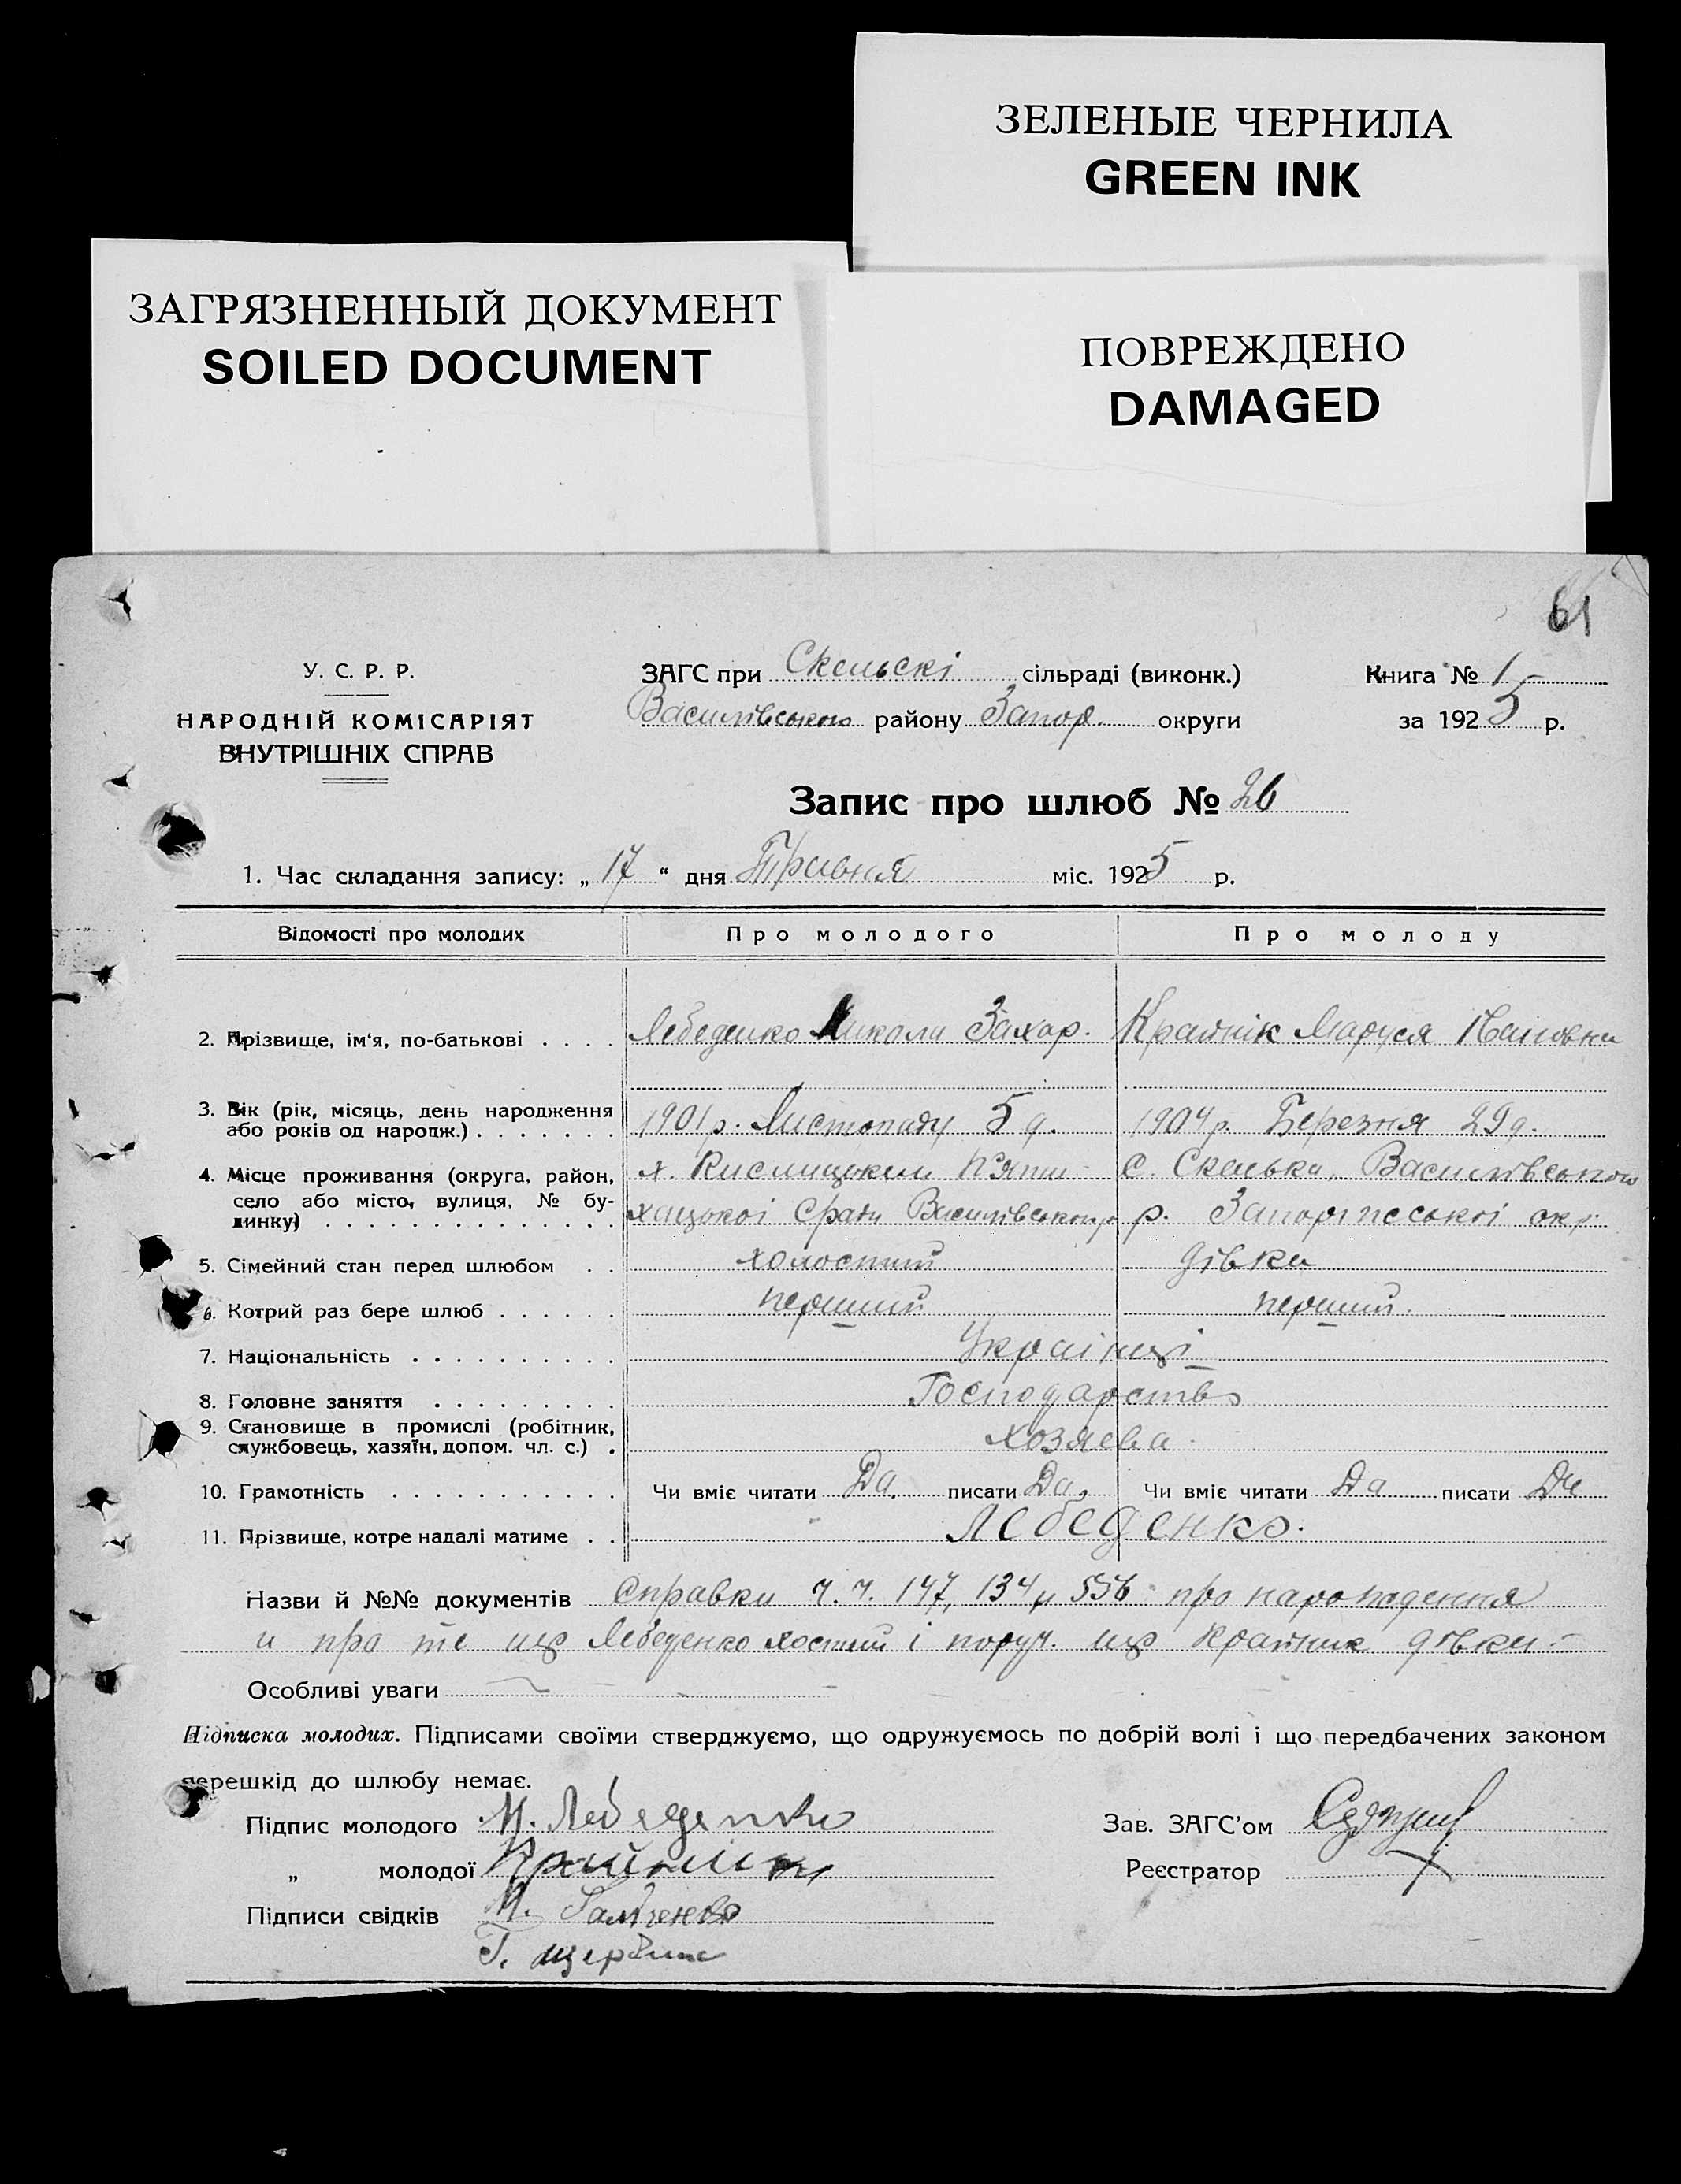 ЗЕЛЕНЫЕ ЧЕРНИЛА
GREEN INK
ЗАГРЯЗНЕННЫЙ ДОКУМЕНТ
SOILED DOCUMENT
ПОВРЕЖДЕНО
DAMAGED
61
У. С. Р. Р.
НАРОДНІЙ КОМІСАРІЯТ
ВНУТРІШНІХ СПРАВ
ЗАГС при Скельскі сільраді (виконк.)
Василівського району Запор. округи
Книга № 1
за 1925 р.
Запис про шлюб № 26
1. Час складання запису: „17“ дня Травня міс. 1925 р.
Відомості про молодих Про молодого Про молоду
2. Прізвище, ім'я, по-батькові . . . . Лебеденко Микола Захар. Крайнік Маруся Івановна
3. Вік (рік, місяць, день народження
або років од народж.) . . . . . . . 1901 р. Листопаду 5 д. 1904 р. Березня 29 д.
4. Місце проживання (округа, район, х. П'яти- с. Скельки, Василівського
село або місто, вулиця, № бу-
динку) . . . . . . . . . . . . . . . хацької Сради Василівського р. р. Запоріжської окр.
5. Сімейний стан перед шлюбом . . холостий дівка
6. Котрий раз бере шлюб . . . . . . перший перший.
7. Національність . . . . . . . . . . Українці
8. Головне заняття . . . . . . . . . Господарство
9. Становище в промислі (робітник,
службовець, хазяїн, допом. чл. с.) . хозяева
10. Грамотність . . . . . . . . . . . Чи вміє читати Да. писати Да. Чи вміє читати Да писати Да
11. Прізвище, котре надалі матиме . . Лебеденко.
Назви й №№ документів Справки ч. ч. 147, 134 и 556 про народження
и про те що Лебеденко хостий і поруч. що Крайник дівки.-
Особливі уваги
Підписка молодих. Підписами своїми стверджуємо, що одружуємось по добрій волі і що передбачених законом
перешкід до шлюбу немає.
Підпис молодого М. Лебеденко Зав. ЗАГС'ом
„ молодої Крайнік Реєстратор
Підписи свідків М.
Г. Щербина